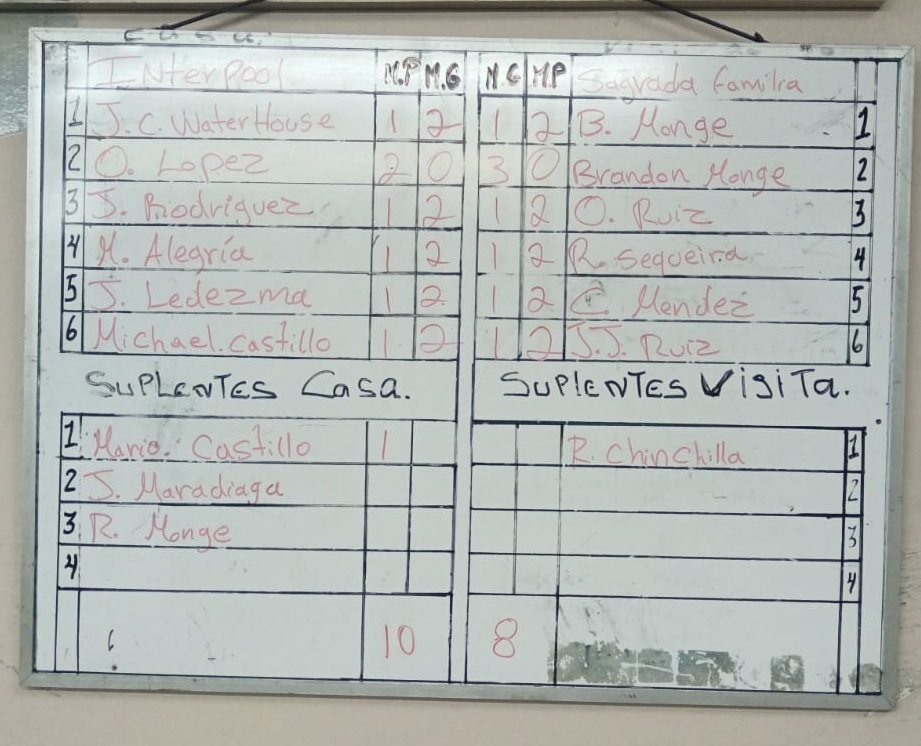 Interpool M.P M.G M.G M.P Sagrada familia
1 J. C. WaterHouse 1 2 1 2 B. Monge 1
2 O. Lopez 2 0 3 0 Brandon Monge 2
3 J. Rodriguez 1 2 1 2 O. Ruiz 3
4 M. Alegría 1 2 1 2 R. sequeira 4
5 J. Ledezma 1 2 1 2 C. Mendez 5
6 Michael. castillo 1 2 1 2 J.J. Ruiz 6
SUPLENTES Casa.
SUPlENTES VisiTa.
1 Mario. Castillo 1 R. Chinchilla 1
2 J. Maradiaga 2
3 R. Monge 3
4 4
10 8